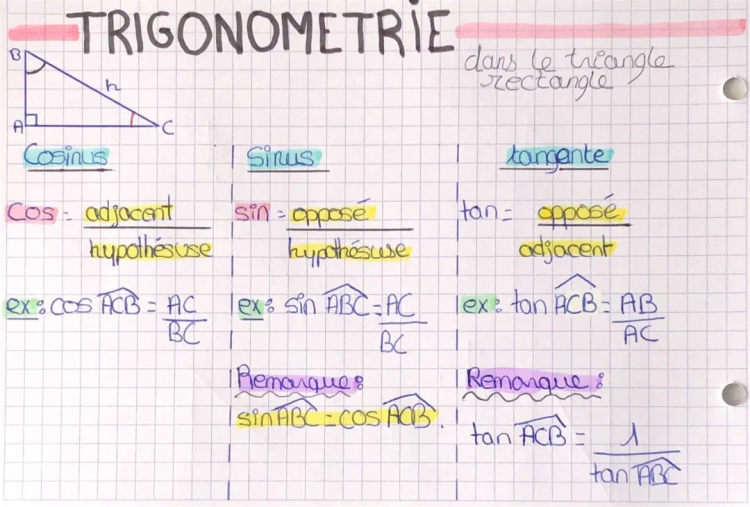 TRIGONOMETRIE
dans le triangle
rectangle
B
h
A
C
Cosinus
cos = adjacent
hypothésuse
ex: cos ACB = AC
BC
Sinus
sin = opposé
hypothésuse
ex: sin ABC = AC
BC
Remarque:
sin ABC = cos ACB.
tangente
tan = opposé
adjacent
ex: tan ACB = AB
AC
Remarque:
tan ACB = 1
tan ABC